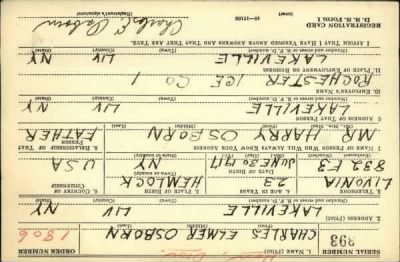 SERIAL NUMBER
293
1. Name (Print)
CHARLES ELMER OSBORN
ORDER NUMBER
1806
(First) (Middle) (Last)
2. Address (Print)
LAKEVILLE LIV NY
3. Telephone
LIVONIA
832 F3
4. Age in Years
23
Date of Birth
JUNE 30 1917
5. Place of Birth
HEMLOCK
NY
6. Country of Citizenship
USA
7. Name of Person Who Will Always Know Your Address
MR HARRY OSBORN
8. Relationship of That Person
FATHER
9. Address of That Person
LAKEVILLE LIV NY
10. Employer's Name
ROCHESTER ICE CO
11. Place of Employment or Business
LAKEVILLE LIV NY
I Affirm That I Have Verified Above Answers and That They Are True.
REGISTRATION CARD
D. S. S. Form 1
16-17105
Charles E. Osborn
(Registrant's signature)
(over)